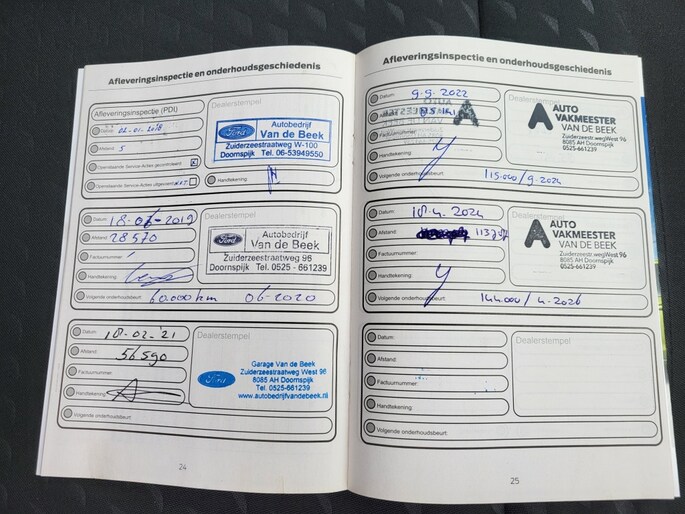 Afleveringsinspectie en onderhoudsgeschiedenis
Afleveringsinspectie (PDI)
Datum: 02-01-2018
Afstand: 5
Openstaande Service-Acties gecontroleerd
Openstaande Service-Acties uitgevoerd
Dealerstempel
Ford
Autobedrijf
Van de Beek
Zuiderzeestraatweg W-100
Doornspijk Tel. 06-53949550
Handtekening:
Datum: 18-06-2019
Afstand: 28570
Factuurnummer:
Handtekening:
Volgende onderhoudsbeurt: 60.000 km 06-2020
Dealerstempel
Ford
Autobedrijf
Van de Beek
Zuiderzeestraatweg 96
Doornspijk Tel. 0525 - 661239
Datum: 18-02-'21
Afstand: 56590
Factuurnummer:
Handtekening:
Volgende onderhoudsbeurt:
Dealerstempel
Ford
Garage Van de Beek
Zuiderzeestraatweg West 96
8085 AH Doornspijk
Tel. 0525-661239
www.autobedrijfvandebeek.nl
24
Afleveringsinspectie en onderhoudsgeschiedenis
Datum: 9-9-2022
Factuurnummer:
Handtekening:
Volgende onderhoudsbeurt: 115.000/9-2024
Dealerstempel
AUTO
VAKMEESTER
VAN DE BEEK
Zuiderzeestr.wegWest 96
8085 AH Doornspijk
0525-661239
Datum: 18-4-2024
Afstand:
Factuurnummer:
Handtekening:
Volgende onderhoudsbeurt: 144.000/4-2026
Dealerstempel
AUTO
VAKMEESTER
VAN DE BEEK
Zuiderzeestr.wegWest 96
8085 AH Doornspijk
0525-661239
Datum:
Afstand:
Factuurnummer:
Handtekening:
Volgende onderhoudsbeurt:
Dealerstempel
25